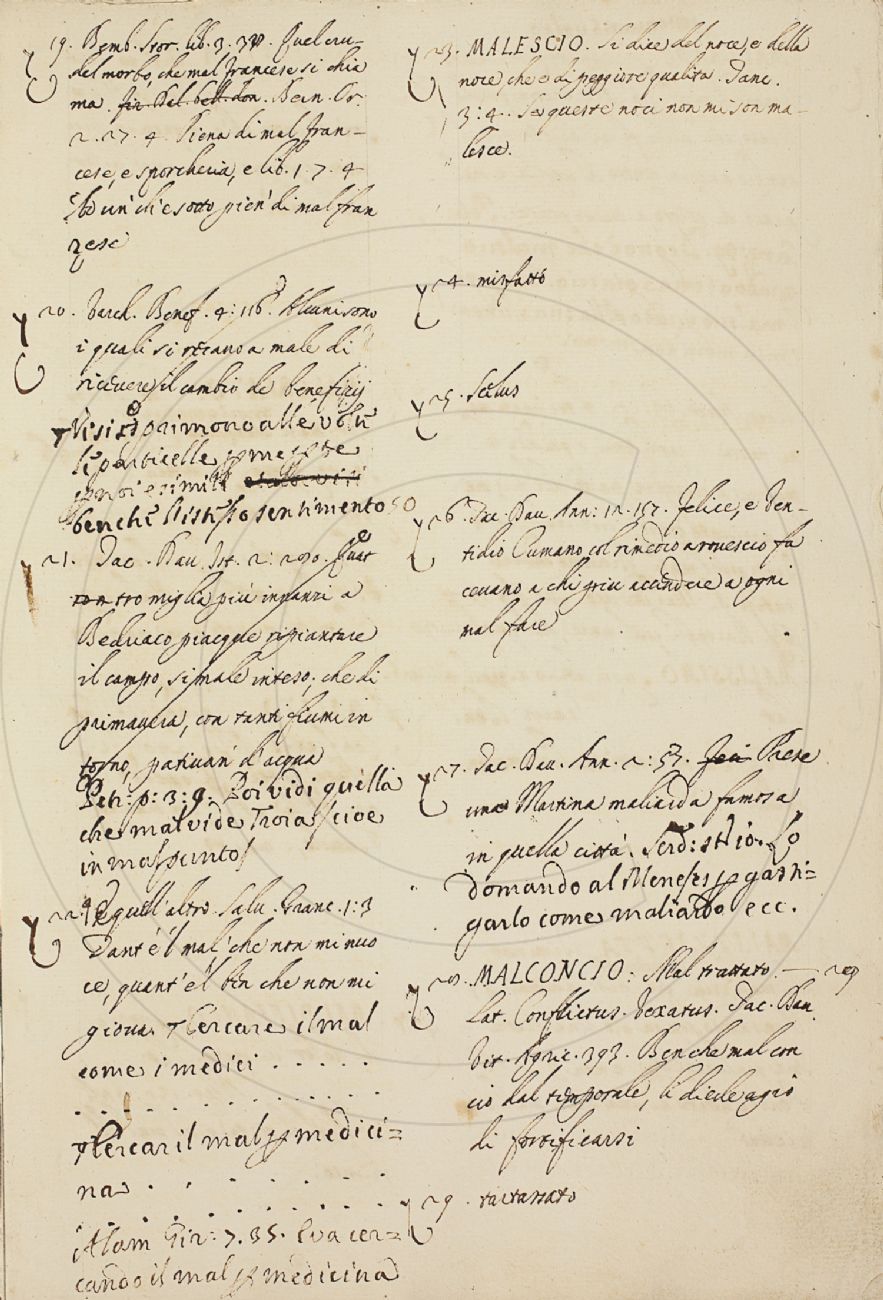 19. Bemb. Stor. lib. 3. 38. Quel cru-
del morbo, che mal francese si chia
ma. Bern. Or.
2. 27. 4. Piena di mal fran-
cese, e sporcheria, e lib. 1. 7. 4
un' di sotto pien' di mal fran
zese
20. Varch. Benef. 4: 116. Alcuni sono
i quali si recano a male di
ricevere il cambio de benefizij
Visi esprimono alle volte
le particelle per me per te
per noi e simili
benche l'istesso sentimento
21. Tac. Dav. Ist. 2: 290. Quat
tro miglia più innanzi a
Bedriaco piacque ripiantare
il campo, si male inteso, che di
primavera, con tanti fiumi in
torno, pativan' d'acqua
Petr: p: 3: 9. Poi vidi quella
che mal vide Troia / cioe
in mal punto /
22. E quell'altro. Salv. Granc. 1: 3
Tant'è'l mal, che non mi nuo
ce, quant'è'l ben che non mi
giova. Cercare il mal
come i medici . . . . .
. . . . . . . . . . . .
Cercar il mal per medici=
na . . . . . . .
. . . . . . . . . .
Alam Gir: 7. 35. Eva cer=
cando il mal per medicina
23. MALESCIO. Si dice del noce, e della
noce, che è di peggiore qualita. Panc.
3: 4. Se queste noci non mi son ma-
lesce.
24. misfatto
25. Scelus
26. Tac. Dav. Ann: 12. 157. Felice, e Ven-
tidio Cumano, col rimedio a rovescio fa
cevano a chi più accendere a ogni
mal fare
27. Tac. Dav. Ann. 2: 57. Prese
una Martina maliarda famosa
in quella città. Serd: St: io. Lo
domando al Meneses per gasti=
garlo come maliardo ecc.
28. MALCONCIO: Mal trattato. — 29
Lat. Conflictus. Vexatus. Tac. Dav.
Vit. Agric. 393. Benche mal con
cio dal temporale, li diede agio
di fortificarsi
29. tartassato